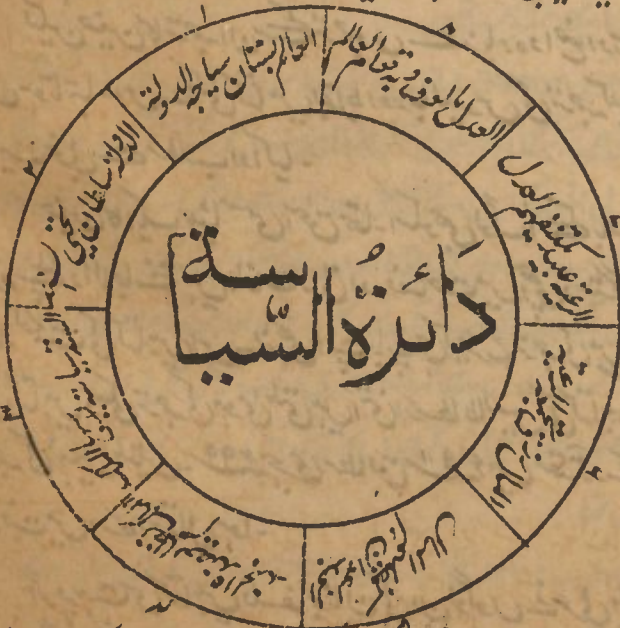 دَائرَةُ السّياسة
١
العالم بستان سياجه الدولة
٢
الدولة سلطان يحيى به السنة
٣
السنة سياسة يسوسها الملك
٤
الملك يعضده الجند
الجند اعوان يكفلهم المال
٦
المال رزق تجمعه الرعية
٧
الرعية عبيد يكنفهم العدل
٨
العدل مالوف وبه قوام العالم